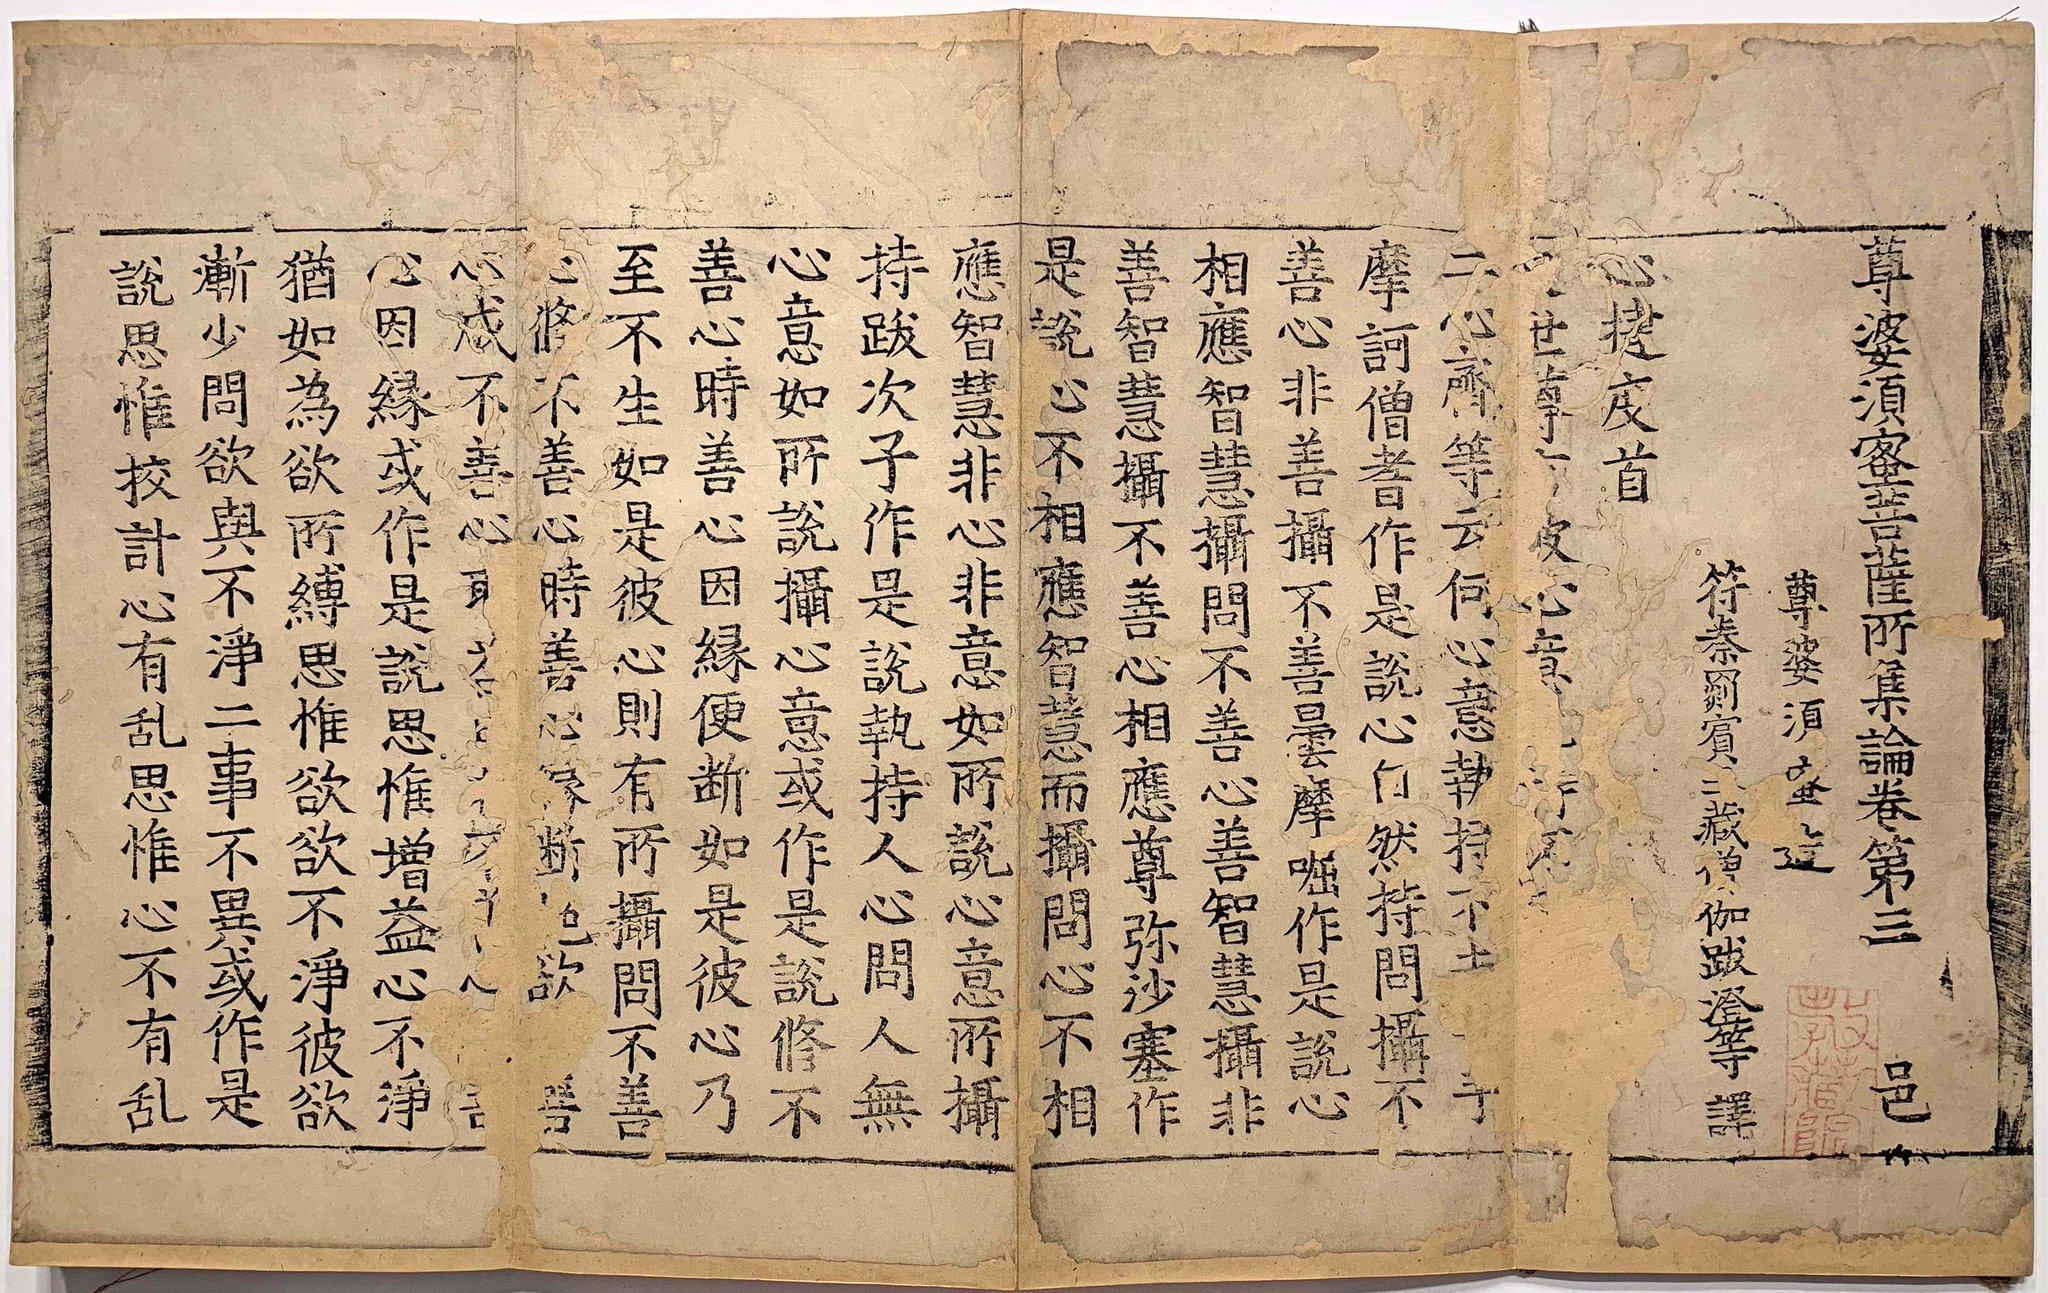 尊婆須蜜菩薩所集論卷第三 邑
尊婆須蜜造
符秦罽賓三藏僧伽跋澄等譯
心揵度首
世尊 彼心意
二心齊等云何心意執持不
摩訶僧耆作是說心自然持問攝不
善心非善攝不善曇摩崛作是說心
相應智慧攝問不善心善智慧攝非
善智慧攝不善心相應尊弥沙塞作
是說心不相應智慧而攝問心不相
應智慧非心非意如所說心意所攝
持跋次子作是說執持人心問人無
心意如所說攝心意或作是說修不
善心時善心因緣便断如是彼心乃
至不生如是彼心則有所攝問不善
心修不善心時善心緣断 欲 善
心或不善心
心因緣或作是說思惟增益心不淨
猶如為欲所縛思惟欲欲不淨彼欲
漸少問欲與不淨二事不異或作是
說思惟挍計心有乱思惟心不有乱